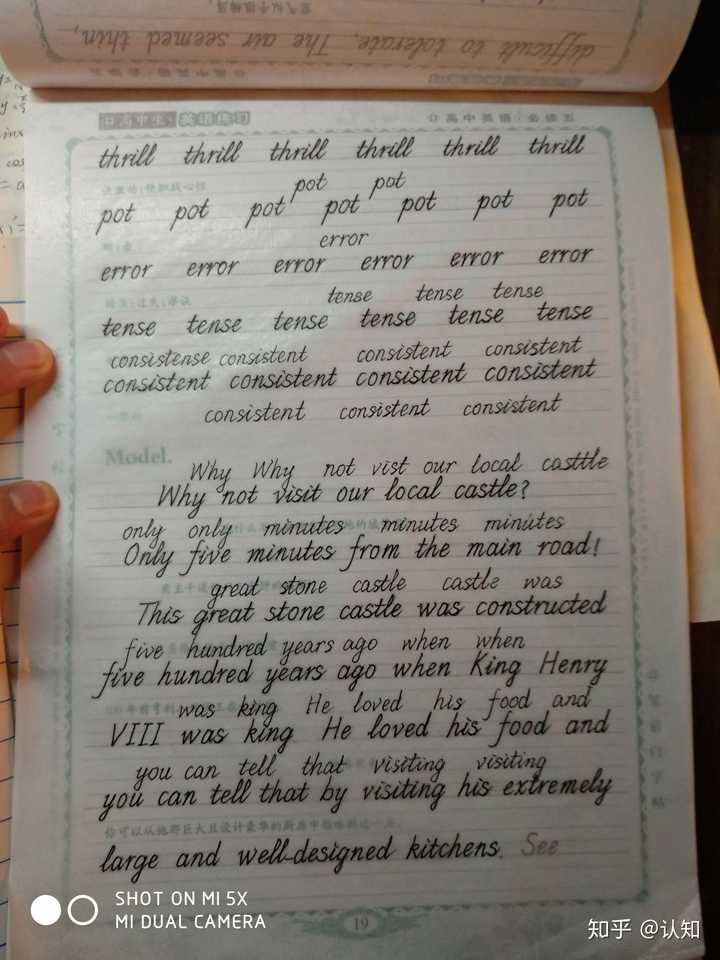 difficult to tolerate. The air seemed thin,
英语练习
高中英语·必修五
thrill thrill thrill thrill thrill thrill
pot pot
pot pot pot pot pot pot pot
error
error error error error error error
tense tense tense
tense tense tense tense tense tense
consistense consistent consistent consistent
consistent consistent consistent consistent
consistent consistent consistent
Model.
Why Why not vist our local casttle
Why not visit our local castle?
only only minutes minutes minutes
Only five minutes from the main road!
great stone castle castle was
This great stone castle was constructed
five hundred years ago when when
five hundred years ago when King Henry
was king He loved his food and
VIII was king He loved his food and
you can tell that visiting visiting
you can tell that by visiting his extremely
large and well-designed kitchens. See
19
SHOT ON MI 5X
MI DUAL CAMERA
知乎 @认知